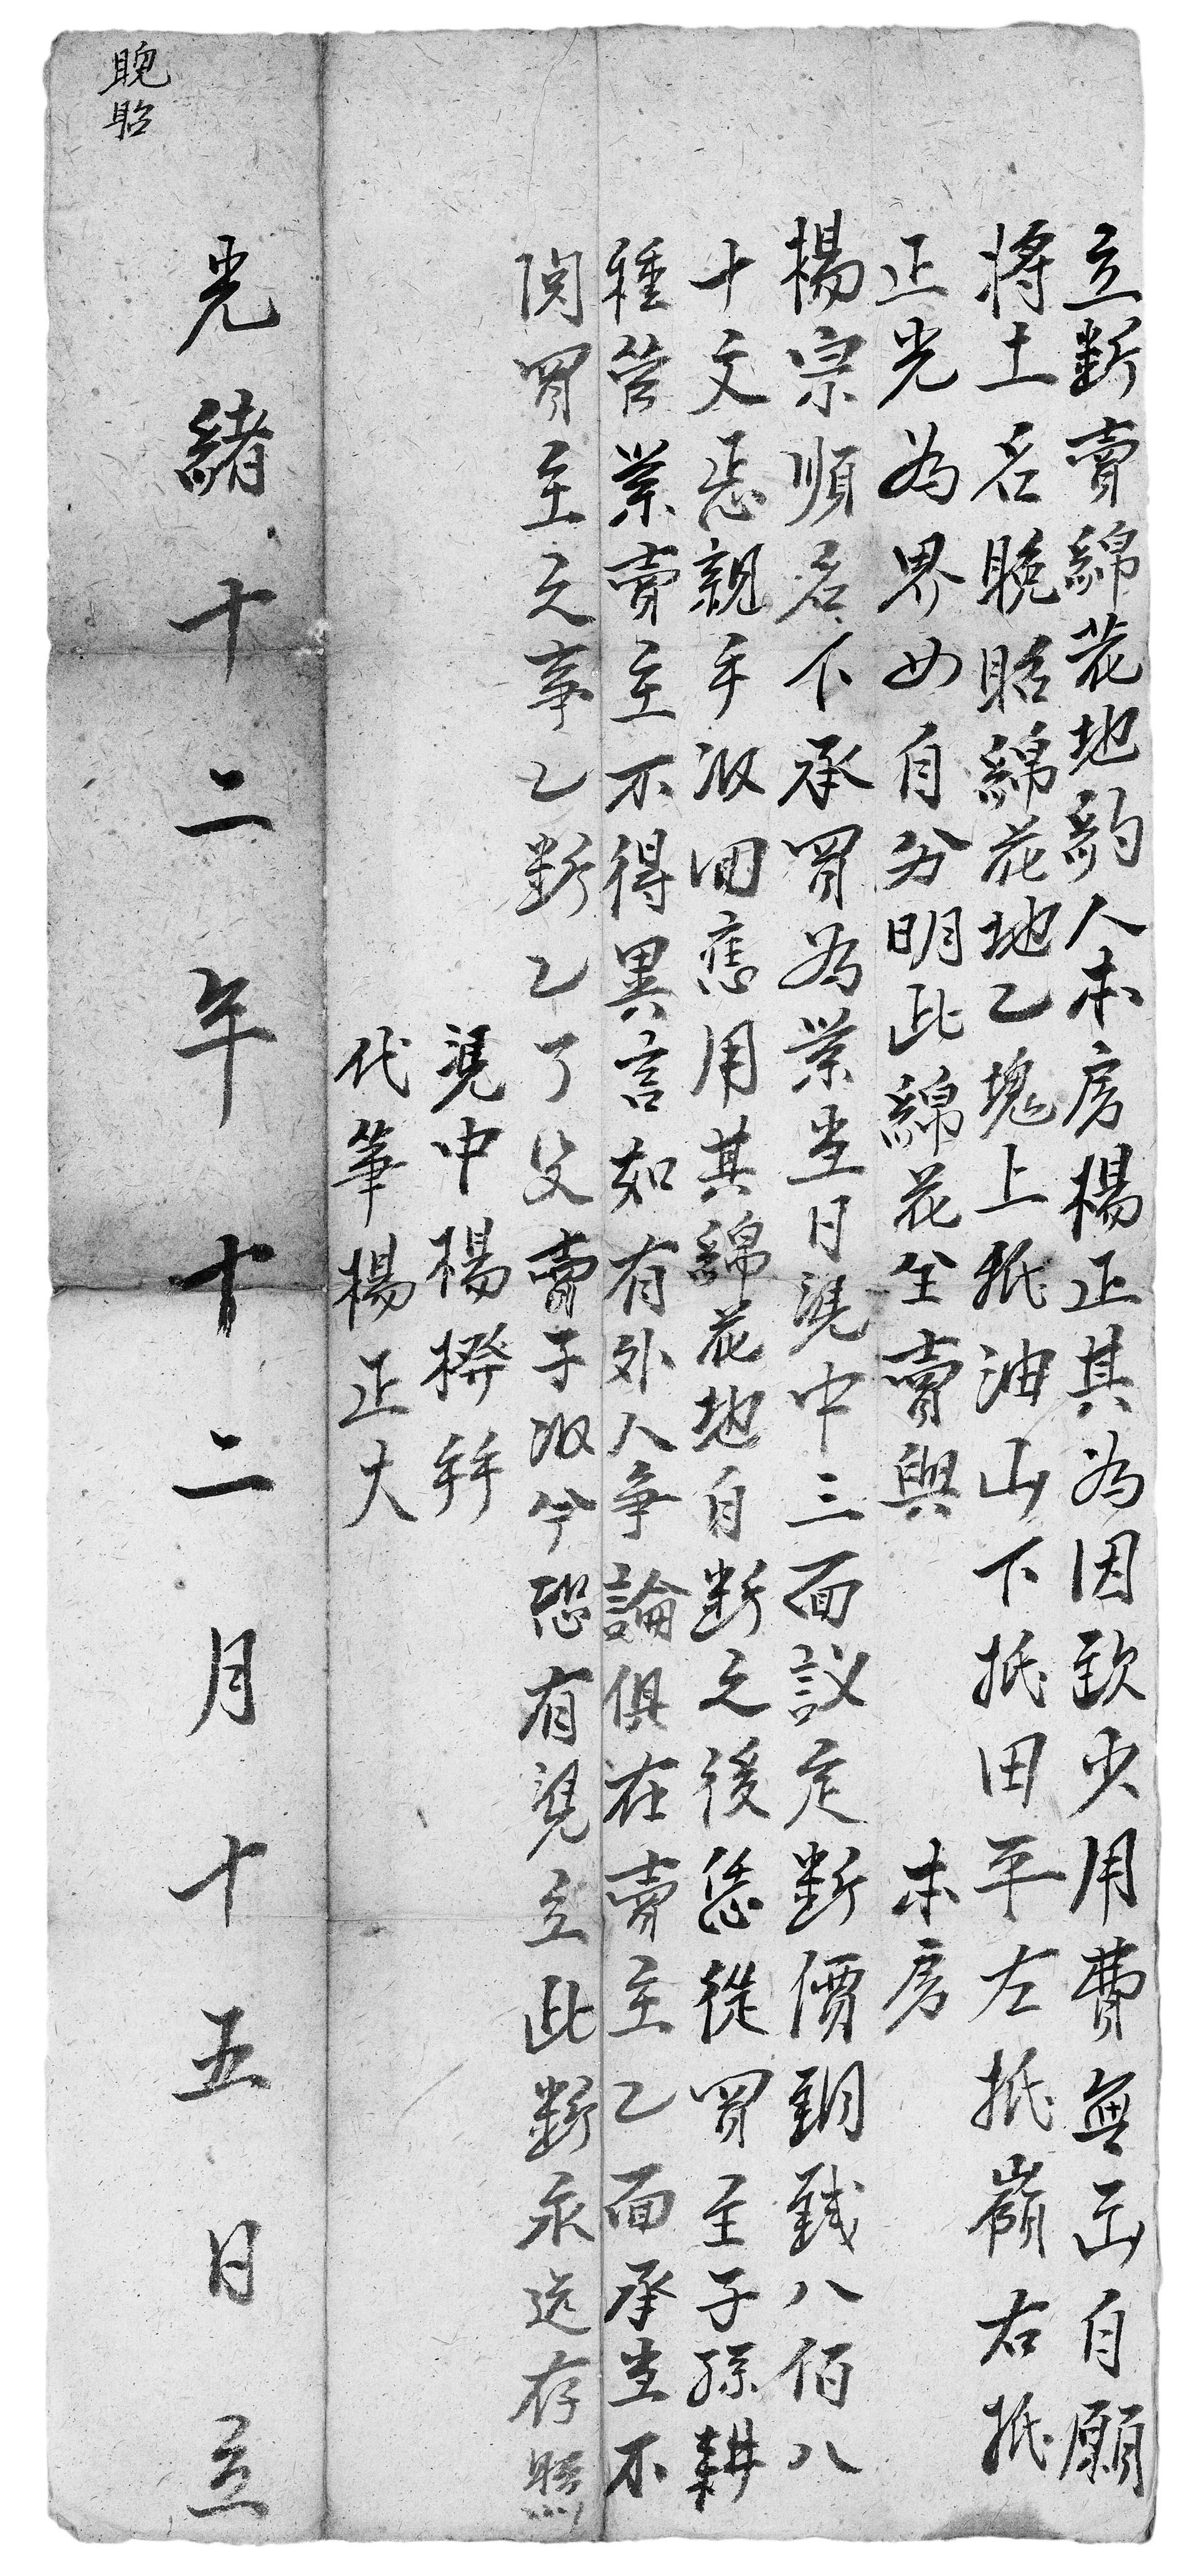 立斷賣綿花地約人本房楊正其為因缺少用費無出自願
將土名晚昭綿花地乙塊上抵油山下抵田平左抵嶺右抵
正光為界四自分明此綿花坌賣與 本房
楊宗順名下承買為業當日凴中三面議定斷價銅錢八佰八
十文悉親手收回應用其綿花地自斷之後恁從買主子孫耕
種管業賣主不得異言如有外人争論俱在賣主乙面承當不
関買主之事乙斷乙了父賣子收今恐有凴立此斷永遠存照
凴中楊
代筆楊正大
光緒十二年十二月十五日立
晚昭